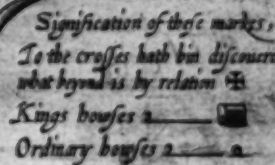 Signification of theſe markes,
To the croſſes hath bin diſcouer
what beyond is by relation ✠
Kings howſes
Ordinary howſes